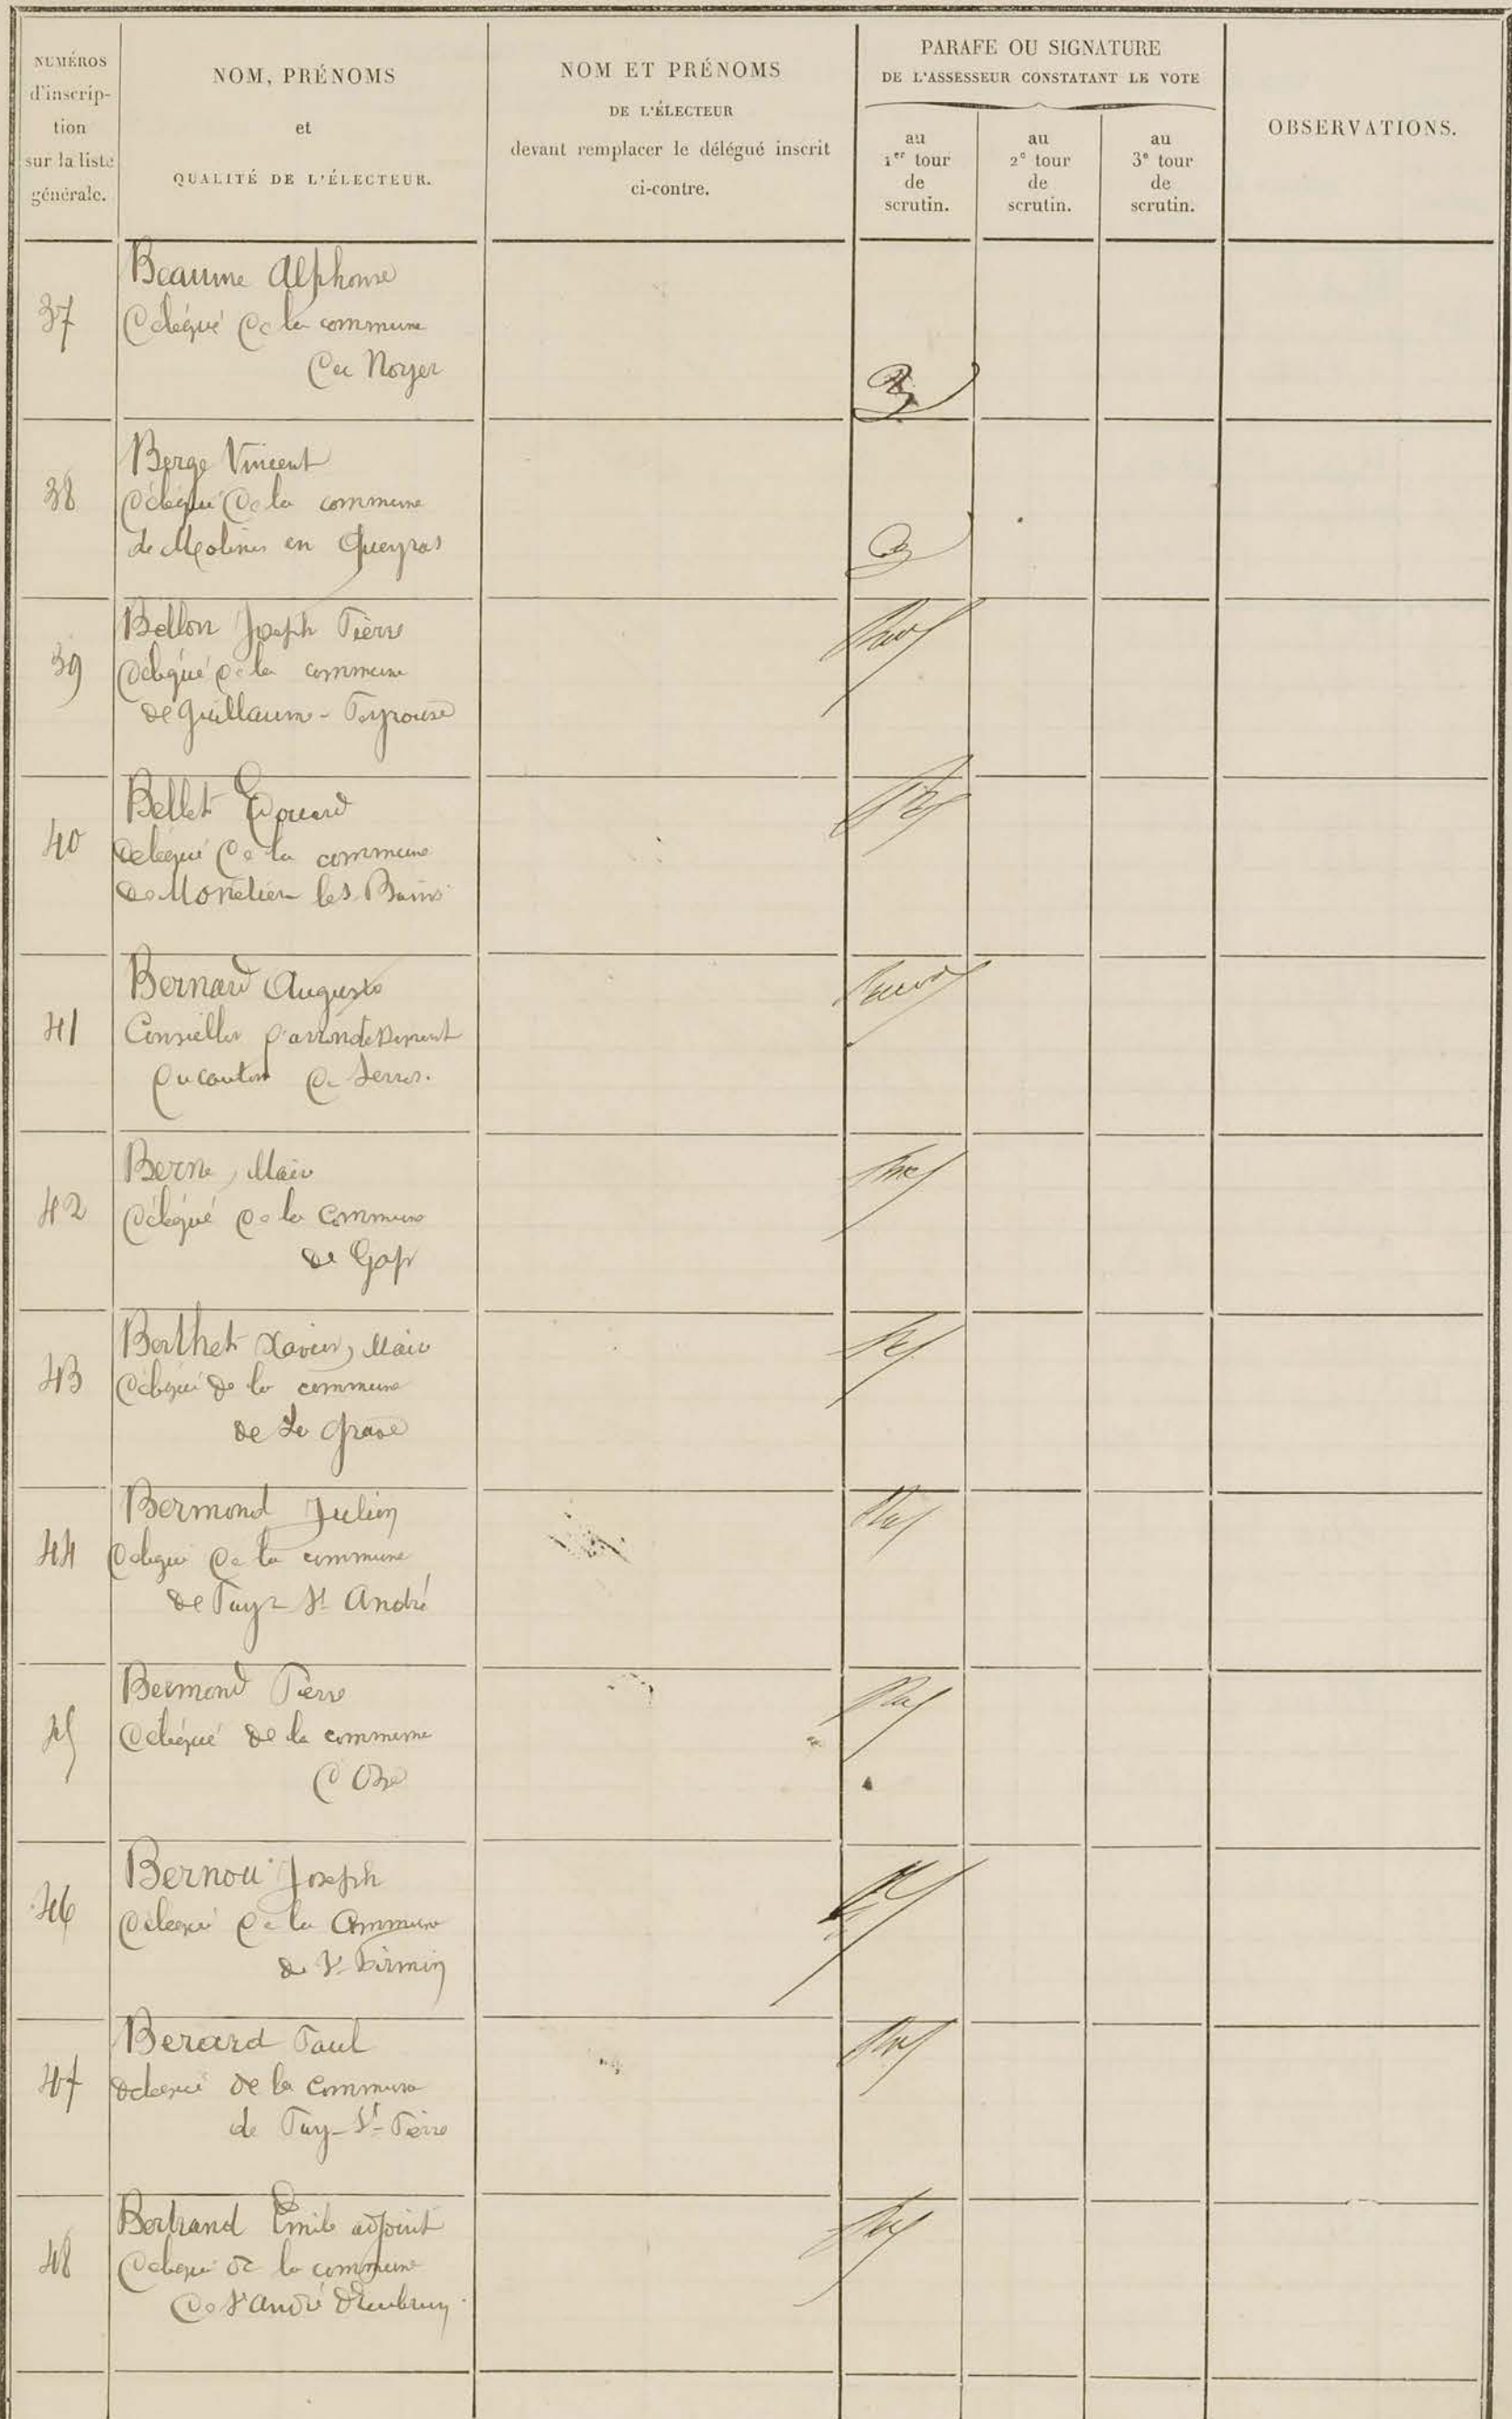 NUMÉROS
d'inscrip-
tion
sur la liste
générale.
NOM, PRÉNOMS
et
QUALITÉ DE L'ÉLECTEUR.
NOM ET PRÉNOMS
DE L'ÉLECTEUR
devant remplacer le délégué inscrit
ci-contre.
PARAFE OU SIGNATURE
DE L'ASSESSEUR CONSTATANT LE VOTE
au
1er tour
de
scrutin.
au
2e tour
de
scrutin.
au
3e tour
de
scrutin.
OBSERVATIONS.
37
Beaume Alphonse
délégué de la commune
du Noyer
38
Berge Vincent
délégué de la commune
de Molines en Queyras
39
Bellon Joseph Pierre
délégué de la commune
de Guillaume-Peyrouse
40
Bellet Edouard
délégué de la commune
de Monêtier les Bains
41
Bernard Auguste
Conseiller d'arrondissement
du canton de Serres.
42
Berne, Maire
délégué de la Commune
de Gap
43
Berthet Xavier, Maire
délégué de la commune
de La Grave
44
Bermond Julien
délégué de la commune
de Puy-St André
45
Bermond Pierre
délégué de la commune
d'Oze
46
Bernou Joseph
délégué de la Commune
de St Firmin
47
Berard Paul
délégué de la Commune
de Puy-St-Pierre
48
Bertrand Emile adjoint
délégué de la commune
de St André d'Embrun